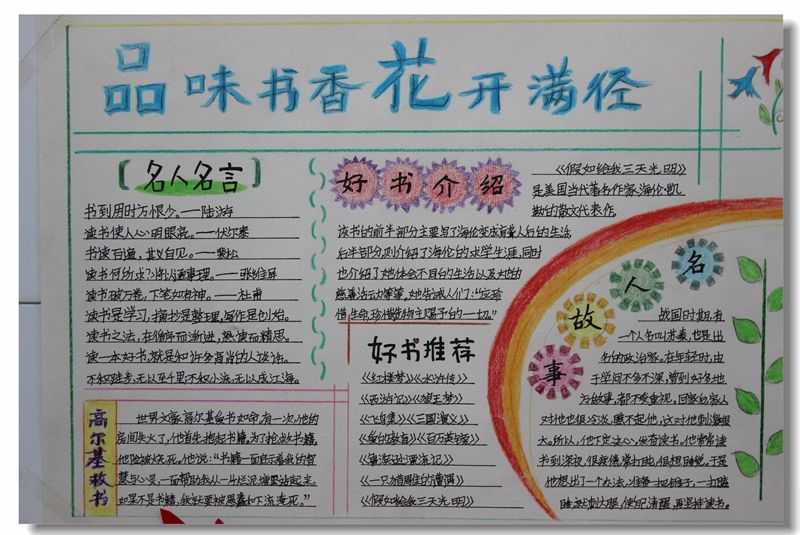 品味书香花开满径
【名人名言】
书到用时方恨少。——陆游
读书使人心明眼亮。——伏尔泰
书读百遍,其义自见。——裴松
读书何所求?将以通事理。——张维屏
读书破万卷,下笔如有神。——杜甫
读书是学习,摘抄是整理,写作是创造。
读书之法,在循序而渐进,熟读而精思。
读一本好书,就是和许多高尚的人谈话。
不积跬步,无以至千里;不积小流,无以成江海。
高尔基救书
世界文豪高尔基爱书如命,有一次,他的
房间失火了,他首先抱起书籍,为了抢救书籍,
他险被烧死。他说:“书籍一面启示着我的智
慧与心灵,一面帮助我从一片烂泥塘里站起来,
如果不是书籍,我就要被愚蠢和下流淹死。”
好书介绍
《假如给我三天光明》
是美国当代著名作家海伦·凯
勒的散文代表作。
该书的前半部分主要写了海伦变成盲聋人后的生活,
后半部分则介绍了海伦的求学生涯,同时
也介绍了她体会不同的生活以及她的
慈善活动等等,她告诫人们:“应珍
惜生命,珍惜造物主赐予的一切。”
好书推荐
《红楼梦》《水浒传》
《西游记》《狼王梦》
《飞鸟集》《三国演义》
《爱的教育》《百万英镑》
《鲁滨逊漂流记》
《一只猎雕的遭遇》
《假如给我三天光明》
名人故事
战国时期,有
一个人名叫苏秦,也是出
名的政治家。在年轻时,由
于学问不多不深,曾到好多地
方做事,都不受重视。回家后家人
对他也很冷淡,瞧不起他,这对他刺激很
大。所以,他下定决心,发奋读书。他常常读
书到深夜,很疲倦,常打盹,很想睡觉。于是
他想出了一个办法,准备一把锥子,一打瞌
睡,就刺大腿,使记清醒,再坚持读书。